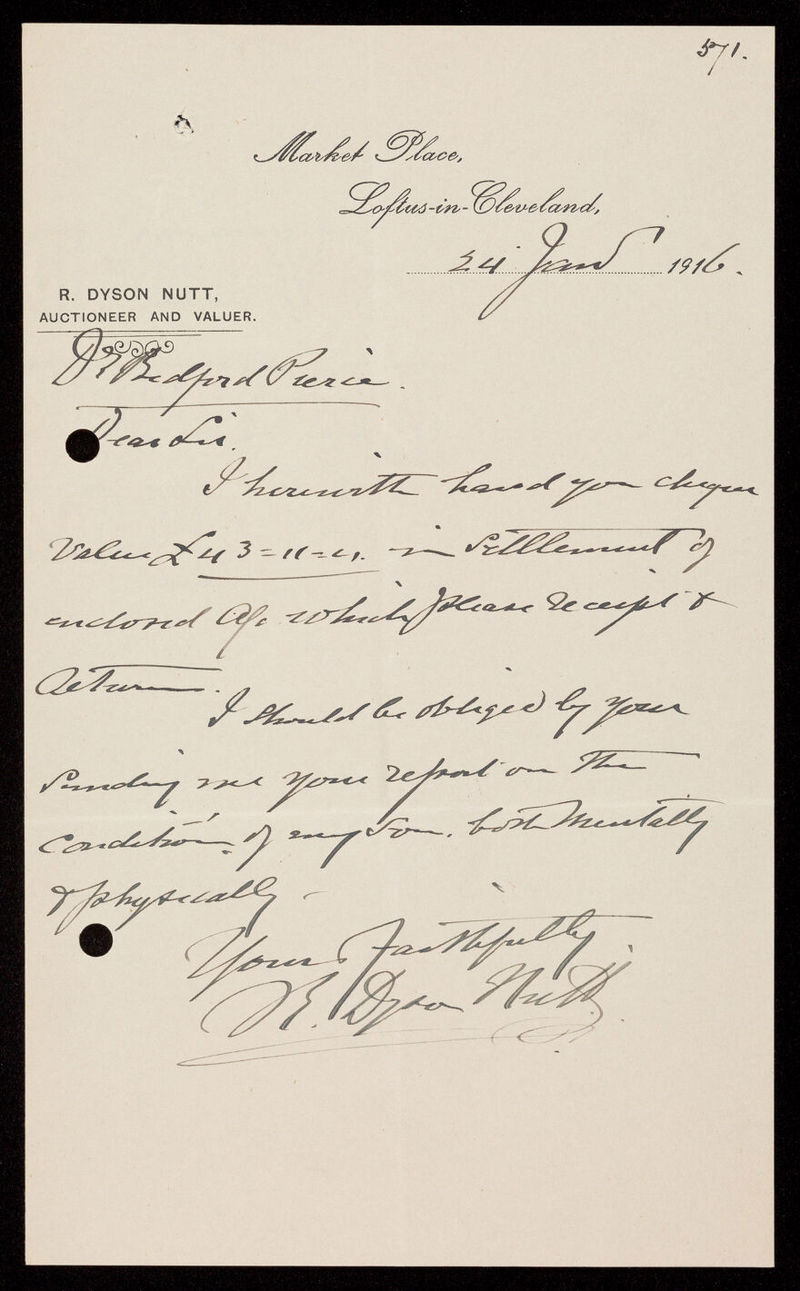 571.
Market Place,
Loftus-in-Cleveland,
24 Jany 1916.
R. DYSON NUTT,
AUCTIONEER AND VALUER.
Dr Bedford Pierce.
Dear Sir.
I herewith hand you cheque
Value £43=11=4. in Settlement of
enclosed A/c which please receipt &
return.
I should be obliged by your
sending me your report on the
condition of my son. both mentally
& physically -
Yours Faithfully
R. Dyson Nutt.